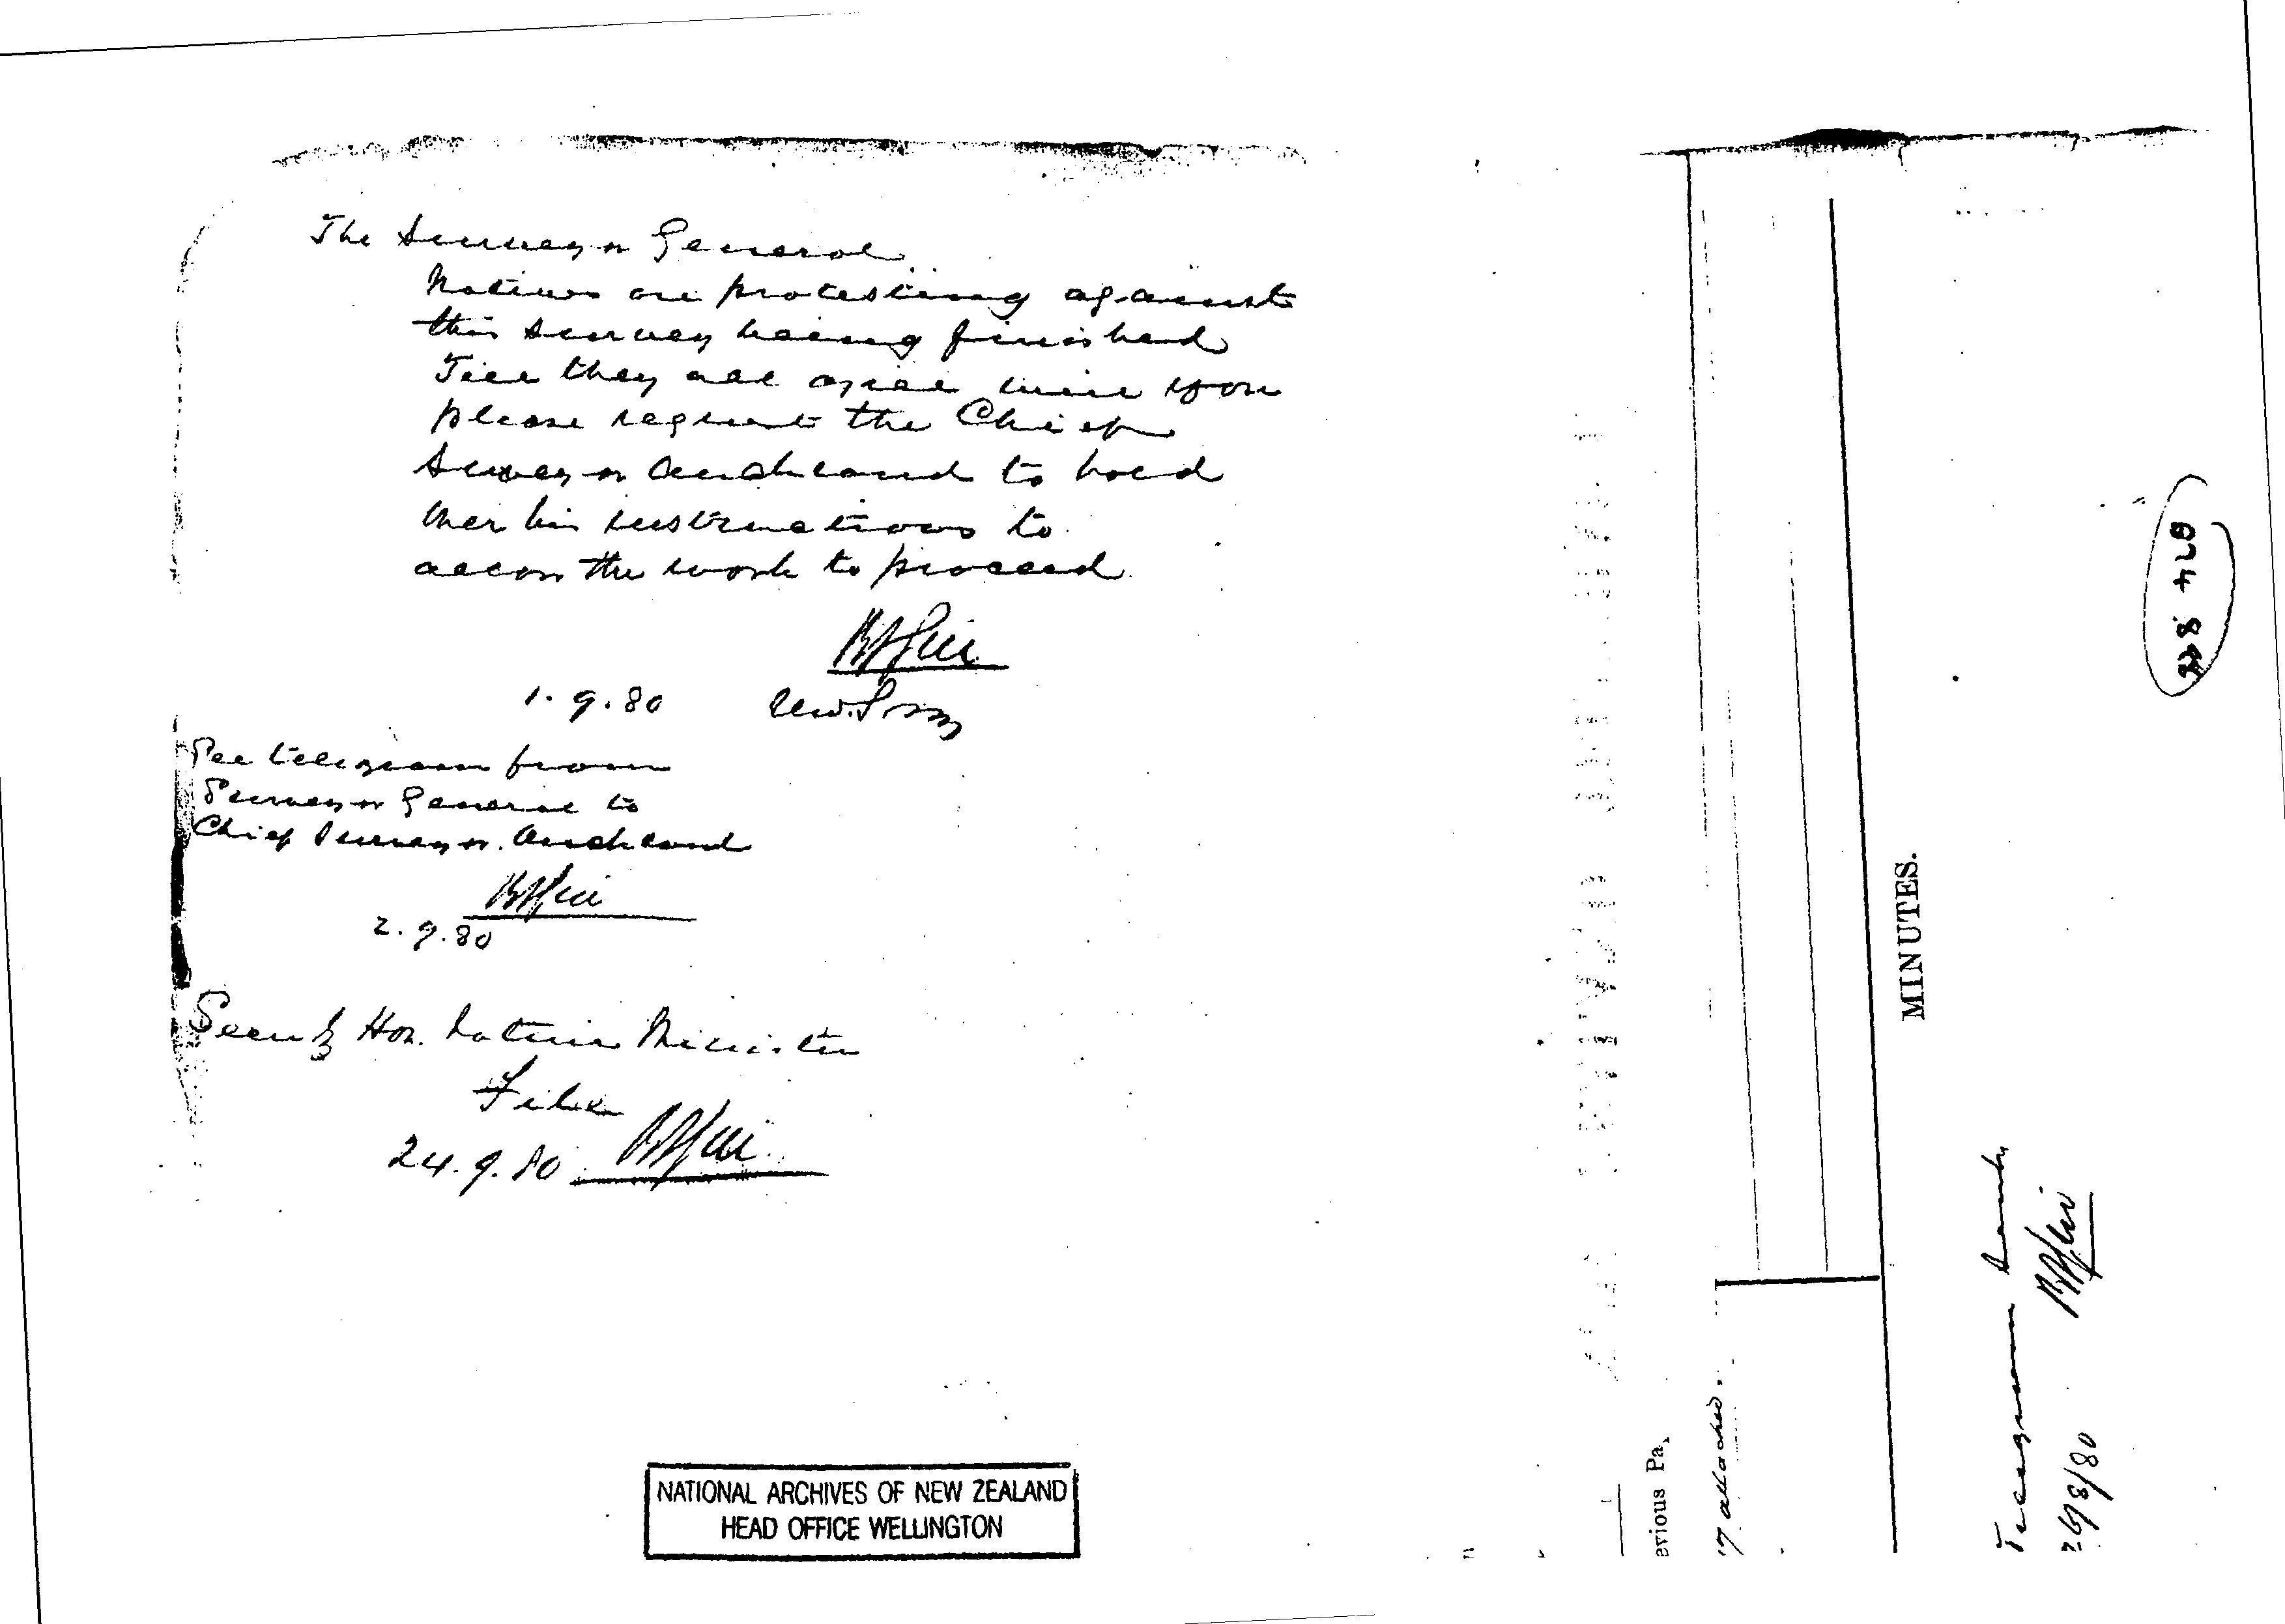 The Surveyor General
Natives are protesting against
this survey being finished
Till they all agree will you
please request the Chief
Surveyor Auckland to hold
over his instructions to
allow the work to proceed
1.9.80
See telegram from
Surveyor General to
Chief Surveyor Auckland
2.9.80
Seen by Hon. Native Minister
File
24.9.80
NATIONAL ARCHIVES OF NEW ZEALAND
HEAD OFFICE WELLINGTON
evious Pa
attached.
MINUTES.
Telegram sent
26/8/80